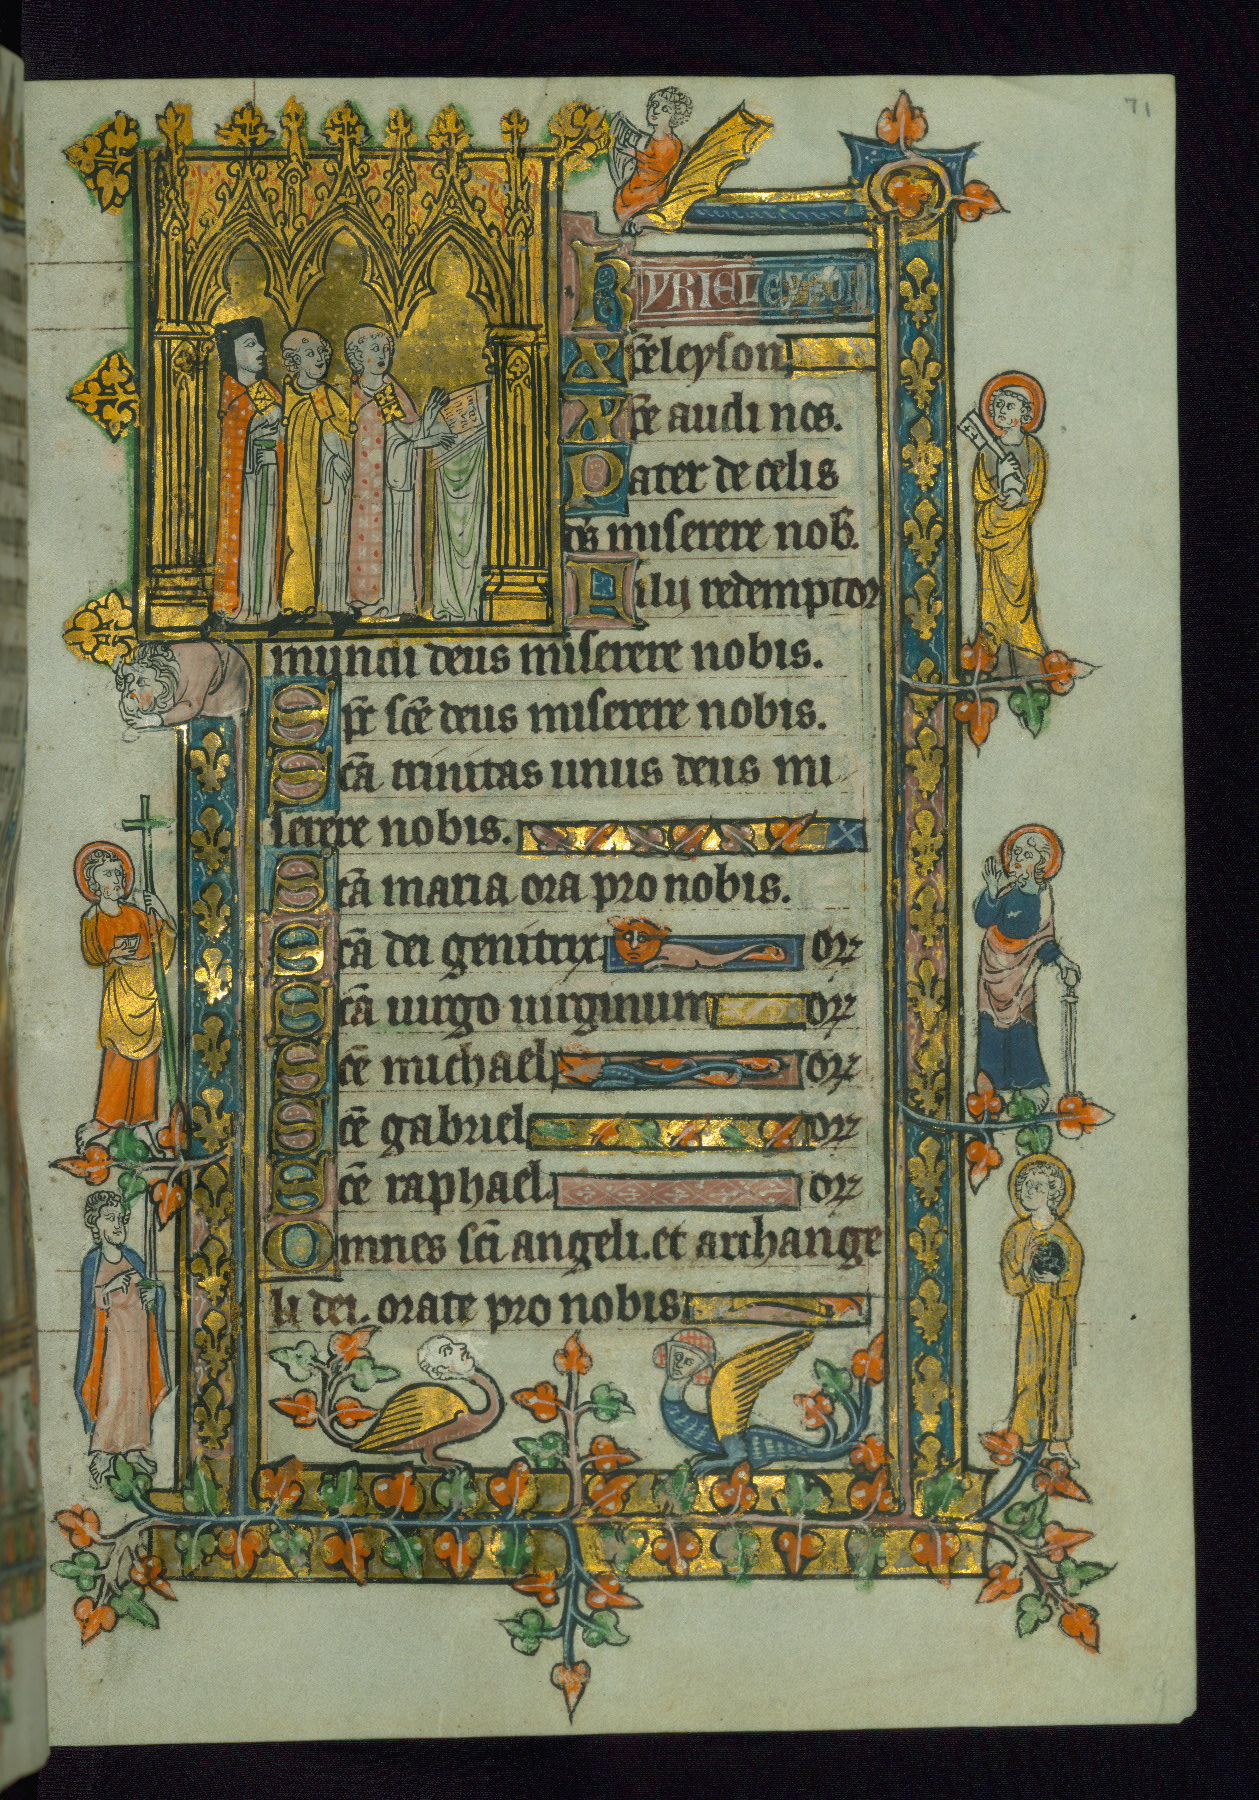 71
KYRIEL eyson
Xp̄eleyson
Xp̄e audi nos.
Pater de celis
ds̄ miserere nob̄.
Filii redemptor
mundi deus miserere nobis.
Sp̄c sc̄e deus miserere nobis.
Sc̄a trinitas unus deus mi
serere nobis.
Sc̄a maria ora pro nobis.
Sc̄a dei genitrix or̄
Sc̄a uirgo uirginum or̄
Sc̄e michael or̄
Sc̄e gabriel or̄
Sc̄e raphael. or̄
Omnes sc̄i angeli. et archange
li dei. orate pro nobis